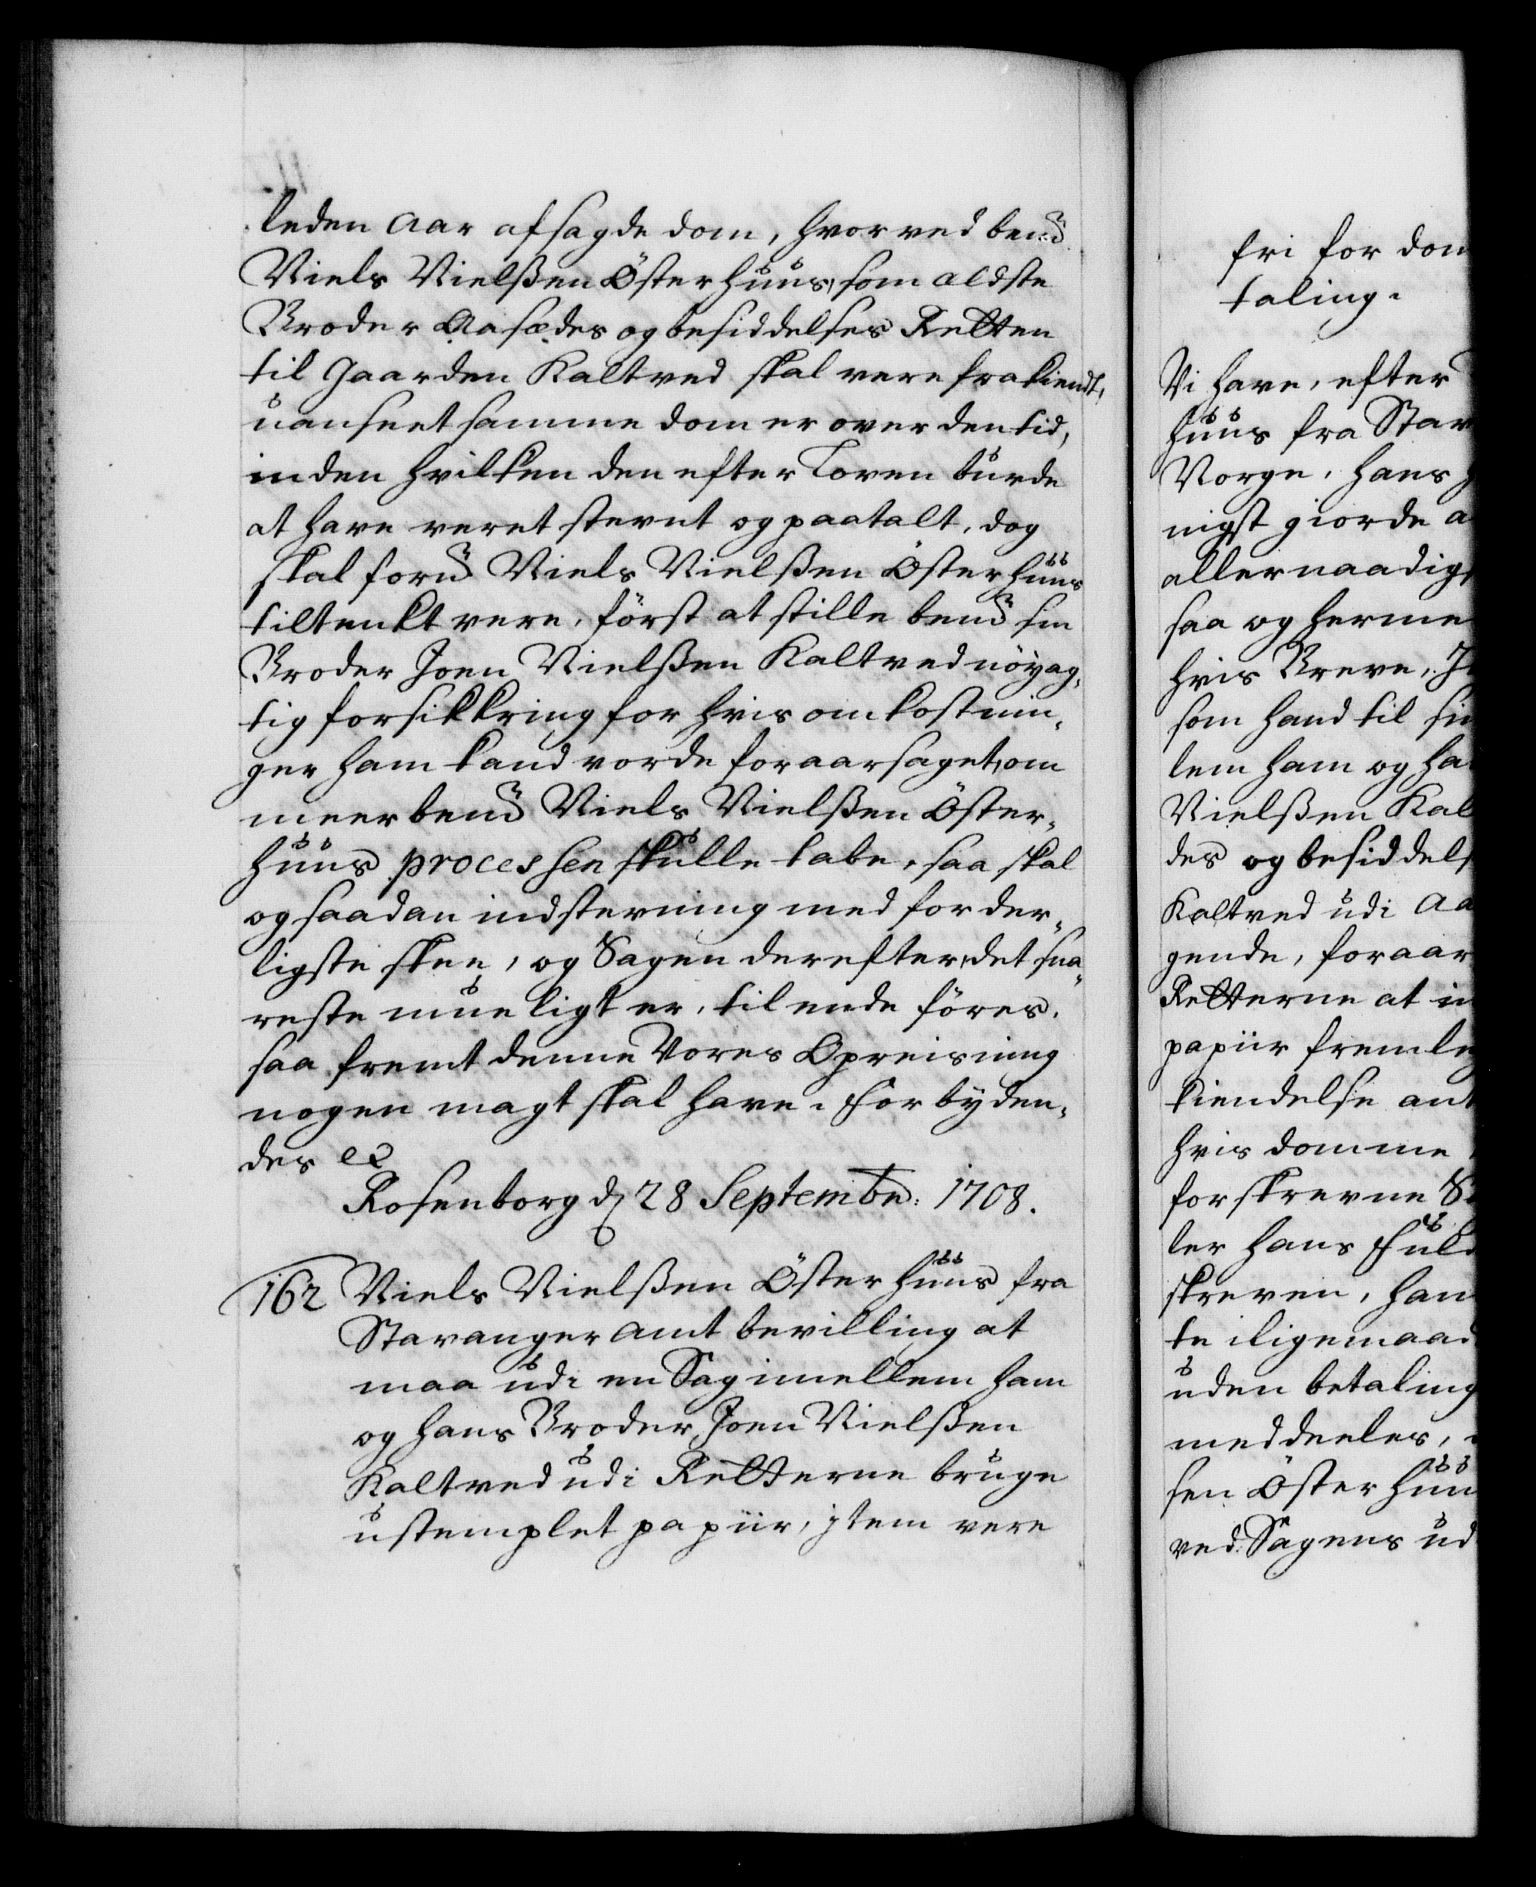 leden Aar afsagde dom, hvorved bemd
Niels Nielßen Österhuus, som eldste
Broder Aasædes og besiddelses Retten
til Gaarden Kaltved skal vere frakiendt,
uanseet samme dom er over den tid,
inden hvilken den efter Loven burde
at have veret stevnt og paatalt, dog
skal fornd Niels Nielßen Österhuus
tiltenkt vere, först at stille bemd sin
Broder Joen Nielßen Kaltved nöyag,
tig forsikkring for hvis omkostnin,
ger ham kand vorde foraarsaget, om
meerbemd Niels Nielßen Öster,
huus processen skulle tabe, saa skal
og saadan indstevning med forder,
ligste skee, og Sagen derefter, det sna,
reste mueligt er, til ende föres,
saa fremt denne Vores Opreisning
nogen magt skal have. Forbyden,
des etc
Rosenborg d 28 Septembr: 1708.
162 Niels Nielßen Österhuus fra
Stavanger Amt bevilling at
maa udi en Sag imellem ham
og hans Broder, Joen Nielßen
Kaltved udi Retterne bruge
ustemplet papiir, jtem vere
fri for dom
taling.
Vi have, efter
huus fra Stav
Norge, hans
nigst giorde a
allernaadigs
saa og herme
hvis Breve, J
som hand til sin
lem ham og ha
Nielßen Kal
des og besiddels
Kaltved udi Aa
gende, foraar
Retterne at in
papiir fremle
kiendelse ant
hvis domme
forskrevne S
ler hans Fuld
skreven, han
te iligemaad
uden betaling
meddeeles,
sen Österhuu
ved Sagens ud